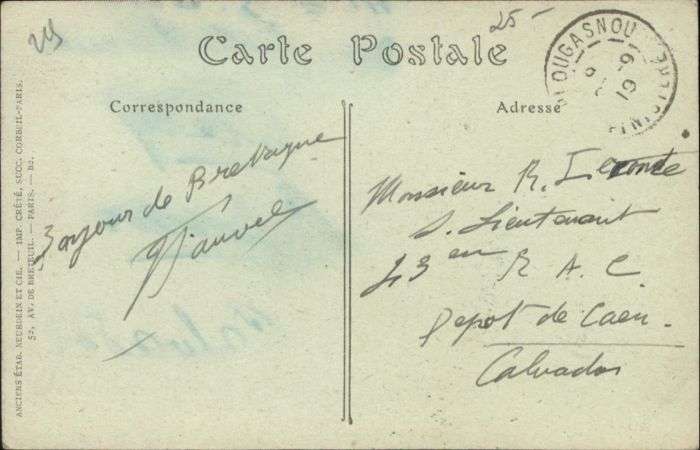 25-
Carte Postale
PLOUGASNOU
FINISTERE
Correspondance
Adresse
Bonjour de Bretagne
Monsieur R. Leconte
S. Lieutenant
43 em R A C
Depot de Caen.
Calvados
ANCIENS ÉTAB. NEURDEIN ET CIE. — IMP. CRÉTÉ, SUCC. CORBEIL-PARIS.
52, AV. DE BRETEUIL. — PARIS. — B2.